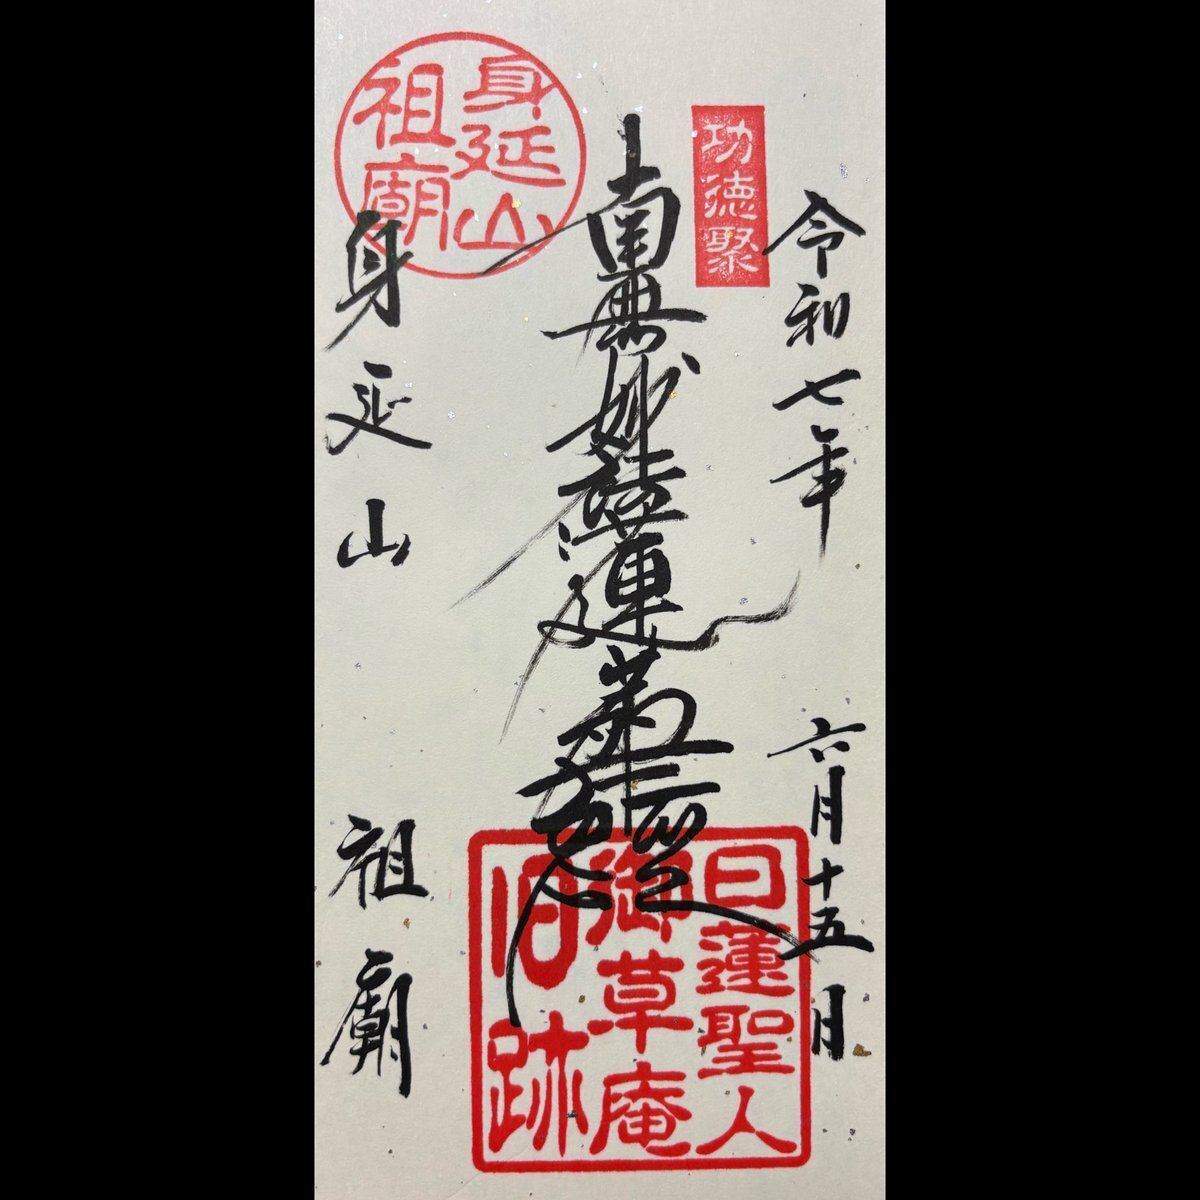 功徳聚
令和七年 六月十五日
南無妙法蓮華經
日蓮聖人
御草庵
旧跡
身延山
祖廟
身延山 祖廟